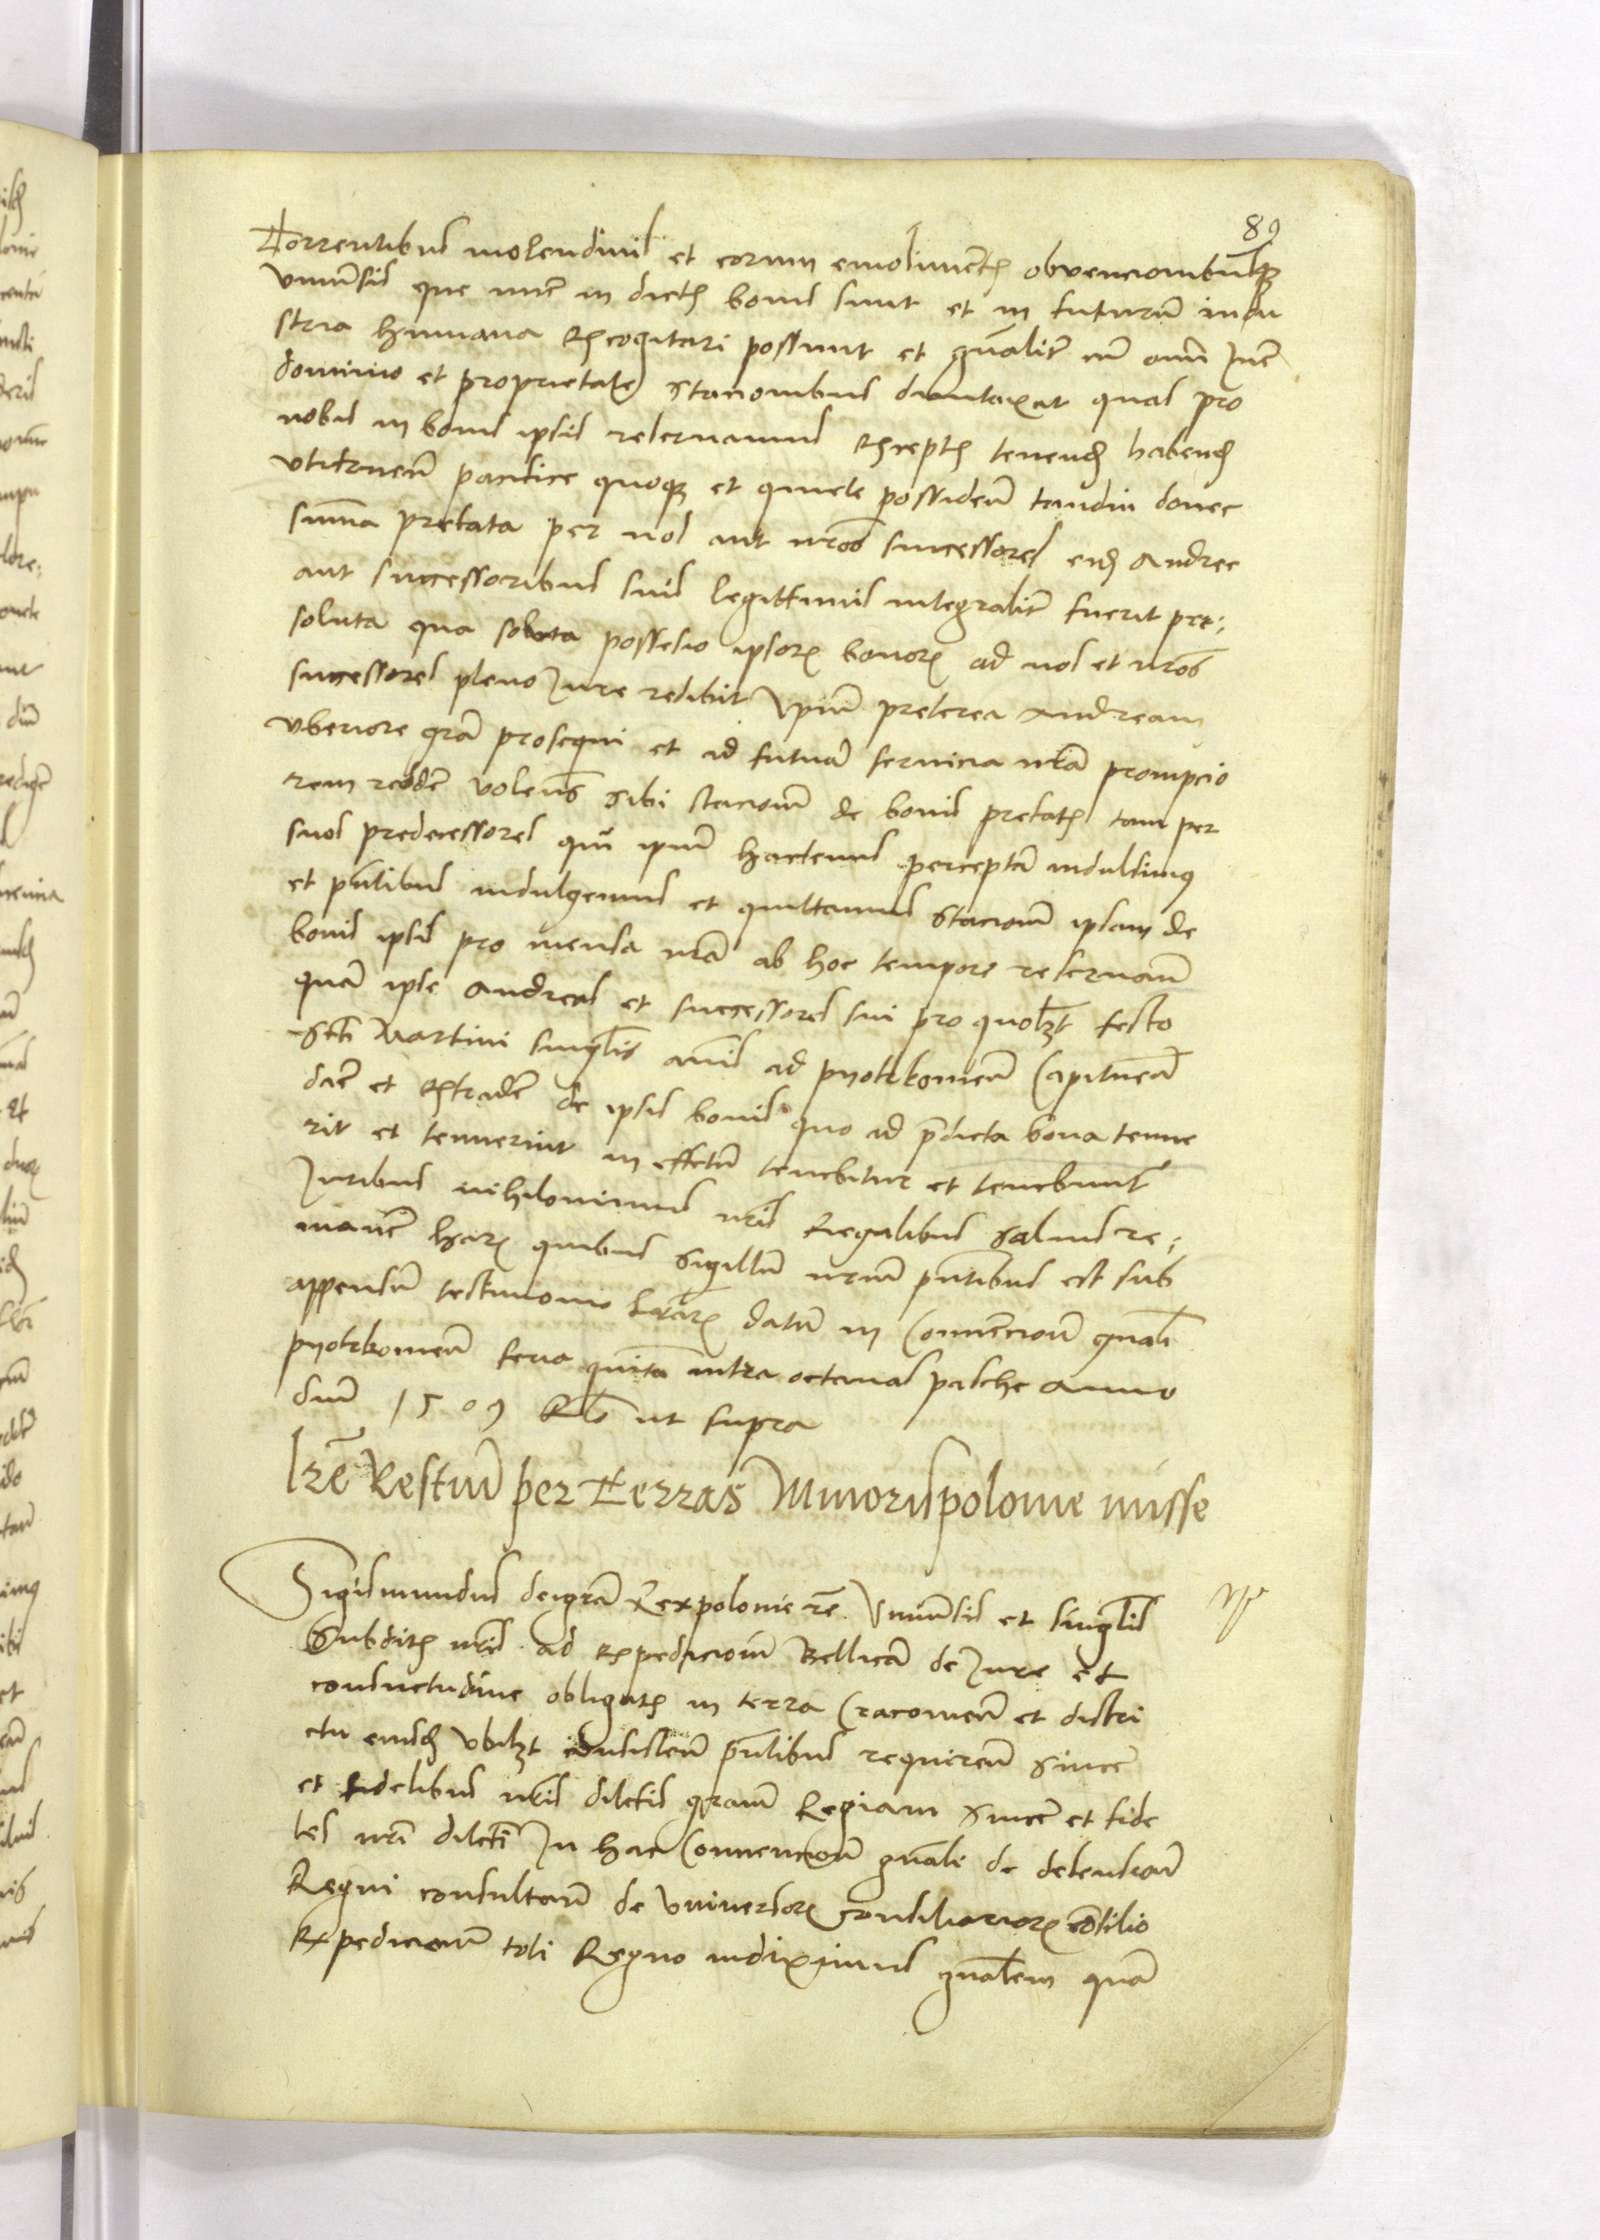 89
Torrentibus molendinis et eorum emolimentis obvencionibusque
universis que nunc in dictis bonis sunt et in futurum indu
stria humana excogitari possunt et generaliter cum omni Iure
dominio et proprietate stacionibus duntaxat quas pro
nobis in bonis ipsis reservamus exceptis tenendum habendum
utifruendum pacifice quoque et quiete possidendum tamdiu donec
summa prefata per nos aut nostros successores eidem Andree
aut successoribus suis legittimis integraliter fuerit per:
soluta qua soluta possesio ipsorum bonorum ad nos et nostros
successores pleno Iure redibit Ipsum preterea Andream
uberiore gratia prosequi et ad futura servicia nostra prompcio
rem reddere volentes sibi stacionem de bonis prefatis tam per
suos predecessores quam ipsum hactenus perceptam indulsimus
et presentibus indulgemus et quittamus stacionem ipsam de
bonis ipsis pro mensa nostra ab hoc tempore reservantes
quam ipse Andreas et successores sui pro quolibet festo
Sancti Martini singulis annis ad pyotrkoviensem Capitaneatum
dare et extradere de ipsis bonis quo ad predicta bona tenue
rit et tenuerint in effectum tenebitur et tenebuntur
Iuribus nihilominus nostris Regalibus salvis re:
manentibus harum quibus sigillum nostrum presentibus est sub
appensum testimonio litterarum datum in Convencione generali
pyotrkoviensi feria quinta intra octavas pasche Anno
domini 1509 Relatio ut supra
littere Restium per Terras Minoris polonie misse
Sigismundus dei gratia Rex polonie etc. Universis et singulis
Subditis nostris ad expedicionem Bellicam de Iure et
consuetudine obligatis in terra Cracoviensi et distri
ctu eiusdem ubilibet consistentibus presentibus requirendis sincere
et fidelibus nostris dilectis graciam Regiam Sincere et fide
les nostri dilecti In hac Convencione generali de defensione
Regni consultantes de universorum consiliariorum consilio
Expedicionem toti Regno indiximus generalem quam